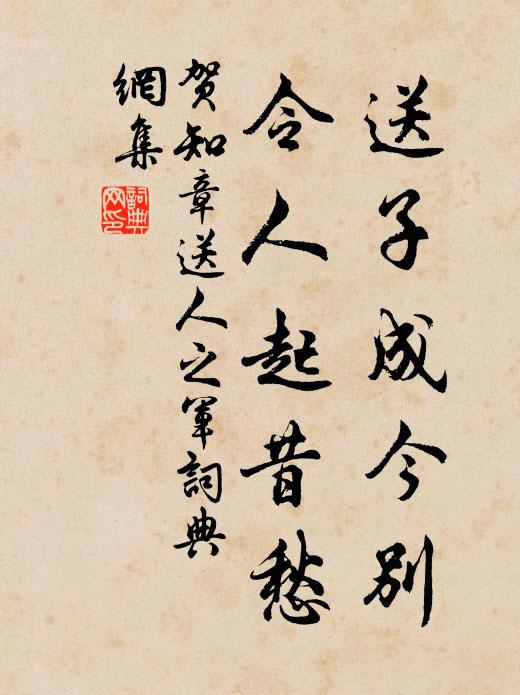 送子成今别
令人起昔愁
贺知章送人之军詞典
網集
詞典
网印